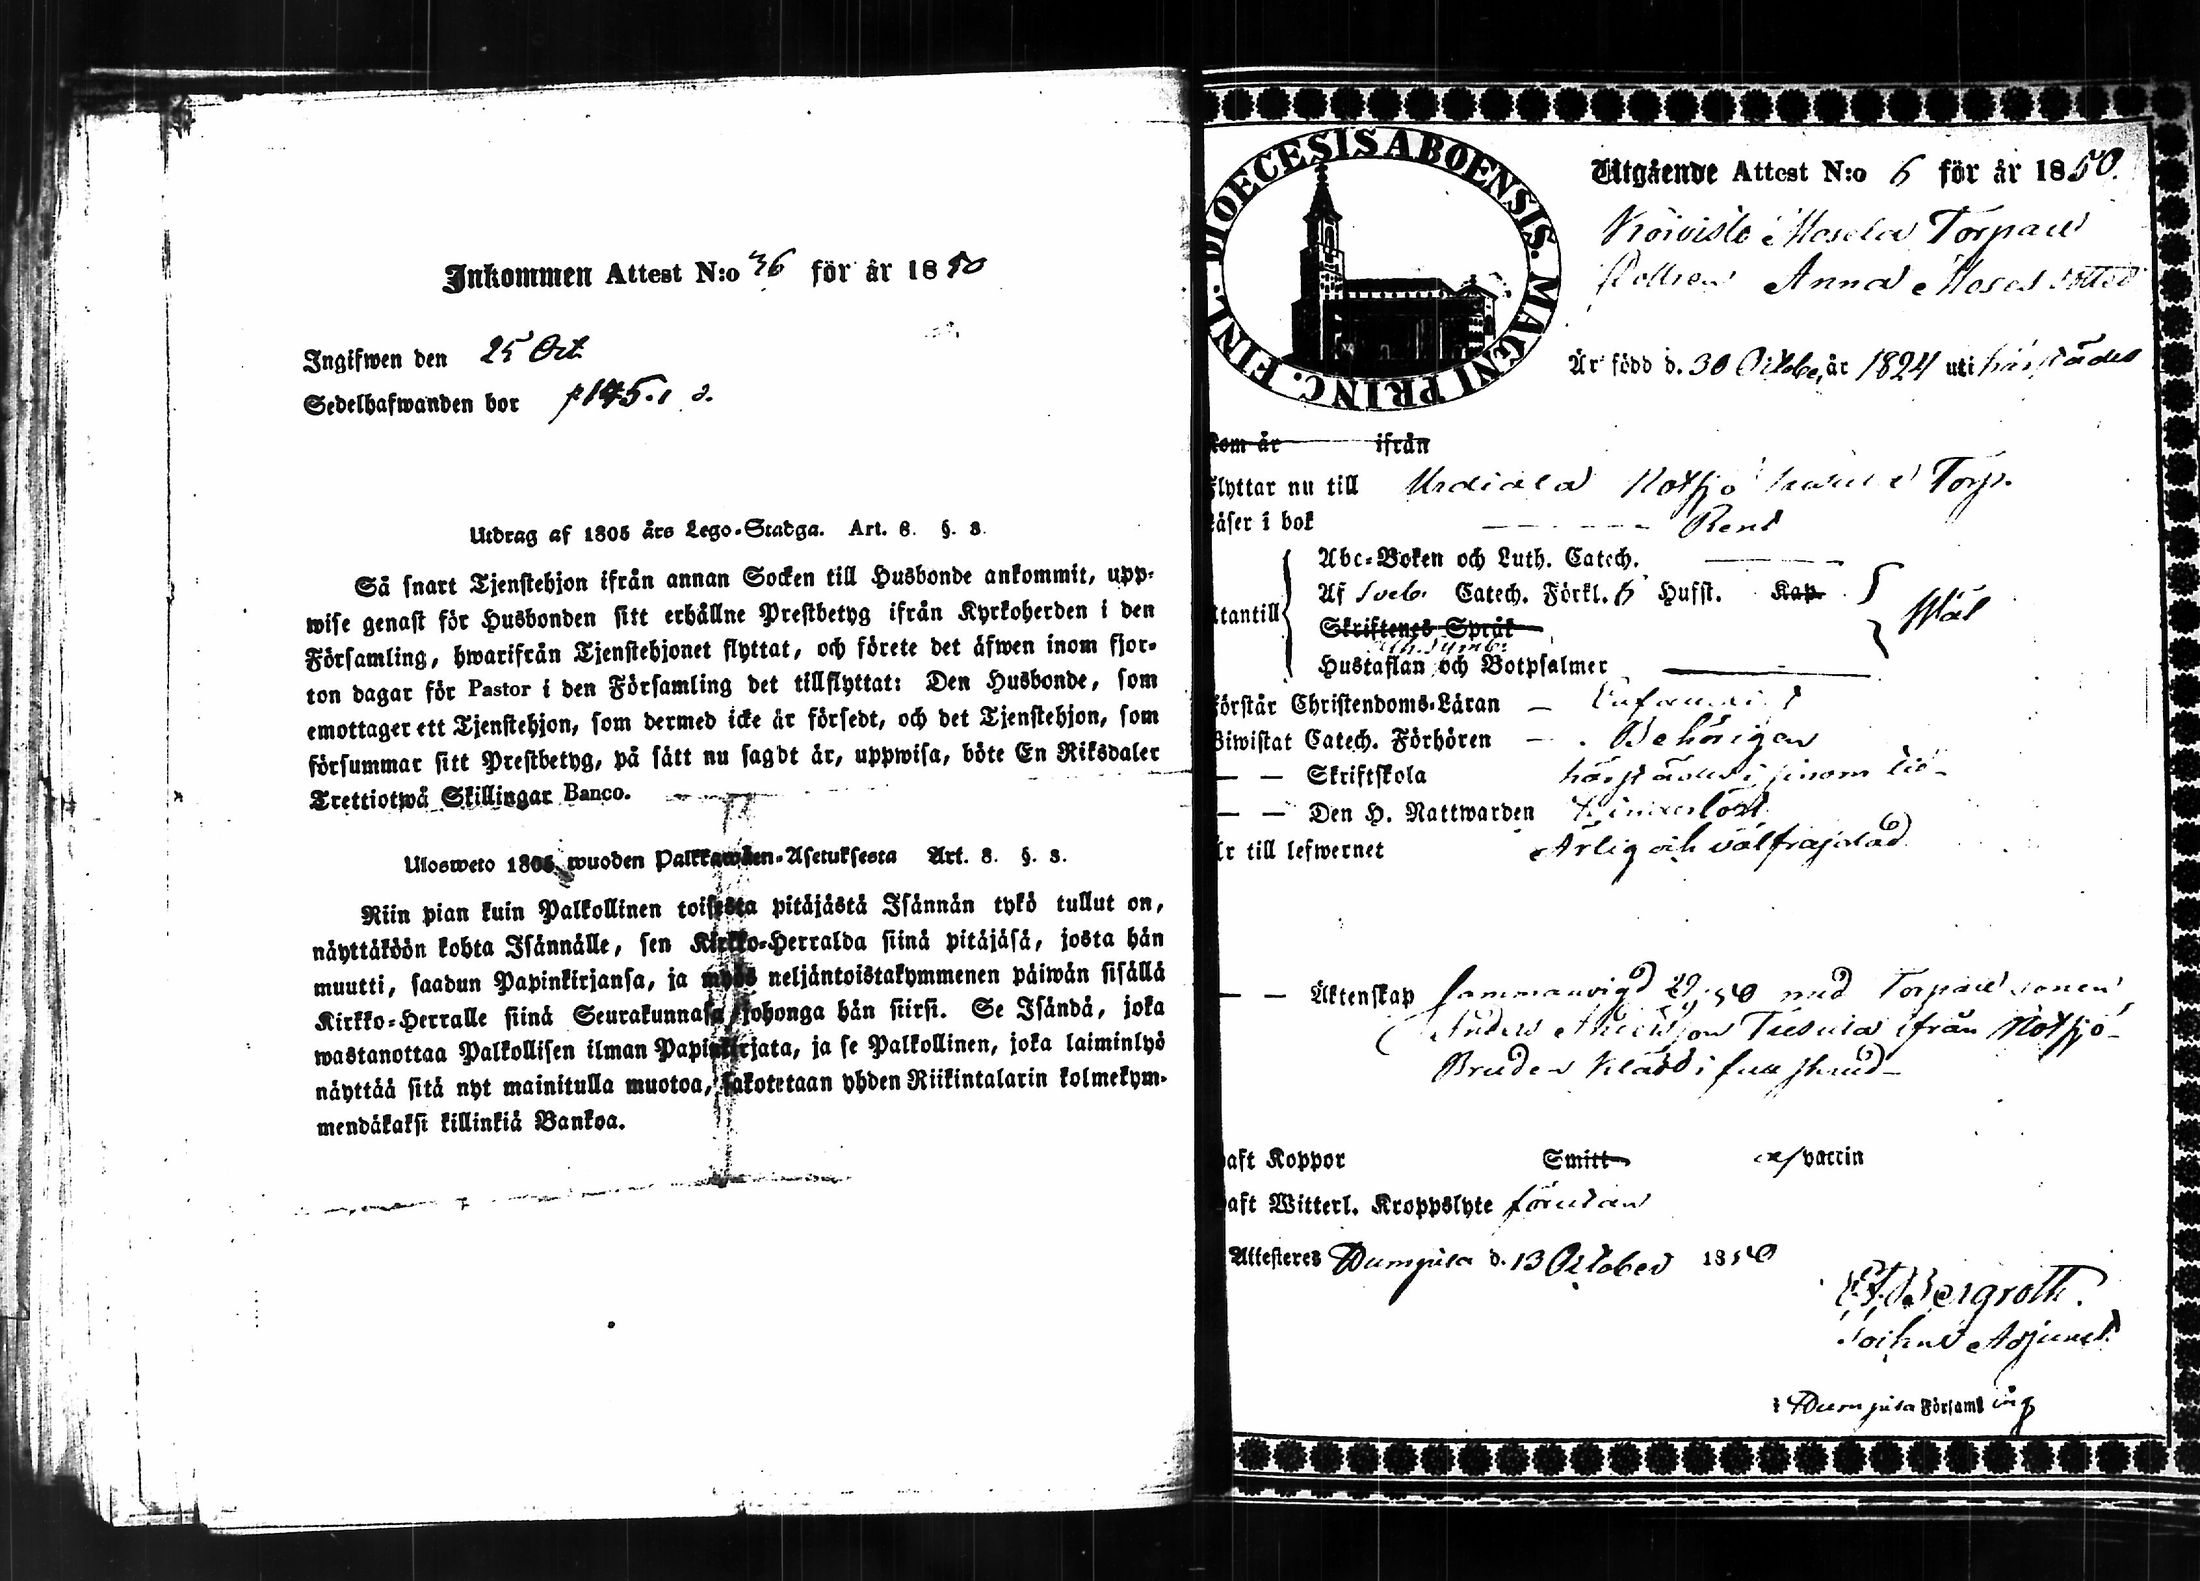 Inkommen Attest N:o 36 för år 1850
Ingifwen den 25 Oct.
Sedelhafwanden bor p 145.
Utdrag af 1805 års Lego-Stadga. Art. 8. §. 3.
Så snart Tjenstehjon ifrån annan Socken till Husbonde ankommit, upp-
wise genast för Husbonden sitt erhållne Prestbetyg ifrån Kyrkoherden i den
Församling, hwarifrån Tjenstehjonet flyttat, och förete det äfwen inom fjor-
ton dagar för Pastor i den Församling det tillflyttat: Den Husbonde, som
emottager ett Tjenstehjon, som dermed icke är försedt, och det Tjenstehjon, som
försummar sitt Prestbetyg, på sätt nu sagdt är, uppwisa, böte En Riksdaler
Trettiotwå Skillingar Banco.
Ulosweto 1805 wuoden Palkkawäen-Asetuksesta Art. 8. §. 3.
Niin pian kuin Palkollinen toisesta pitäjästä Isännän tykö tullut on,
näyttäköön kohta Isännälle, sen Kirkko-Herralda siinä pitäjäsä, josta hän
muutti, saadun Papinkirjansa, ja myös neljäntoistakymmenen päiwän sisällä
Kirkko-Herralle siinä Seurakunnasa johonga hän siirsi. Se Isändä, joka
wastanottaa Palkollisen ilman Papinkirjata, ja se Palkollinen, joka laiminlyö
näyttää sitä nyt mainitulla muotoa, sakotetaan yhden Riikintalarin kolmekym-
mendäkaksi killinkiä Bankoa.
DIOECESIS ABOENSIS. MAGNI PRINC. FINL.
Utgående Attest N:o 6 för år 1850.
Koivisto Torpare
Anna Moses dotter
Är född d. 30 Octobr, år 1824 uti härstädes
Kom år ifrån
Flyttar nu till Urdiala Notsjö Torp.
Läser i bok Rent
Abc-Boken och Luth. Catech.
Af Sveb. Catech. Förkl. Hufst. Kap.
Utantill
Wäl
Skriftenes Språk
Ath. Symb.
Hustaflan och Botpsalmer
Förstår Christendoms-Läran Enfaldigt
Biwistat Catech. Förhören Behörigen
— — Skriftskola härstädes i sinom tid
— — Den H. Nattwarden
Är till lefwernet Ärlig och välfräjdad
— — Äktenskap Sammanvigd 29/9 50 med Torpare sonen
Anders Andersson ifrån Notsjö
Bruden klädd i full skrud
Haft Koppor Smitt vaccin
Haft Witterl. Kroppslyte förutan
Attesteres Wambula d. 13 October 1850
Bergroth.
Sockne Adjunct
i Församling